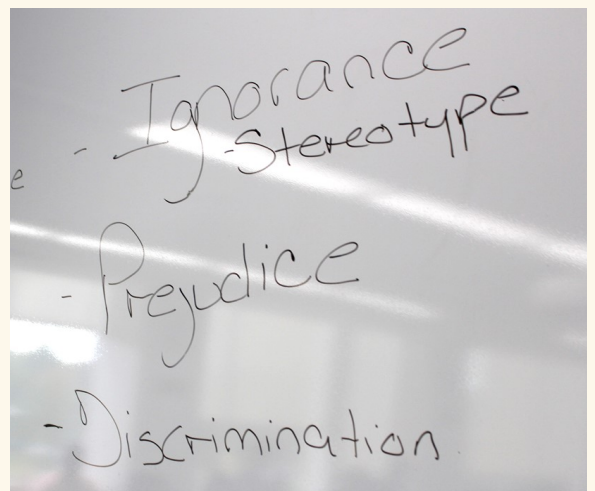 - Ignorance
- Stereotype
e
- Prejudice
- Discrimination